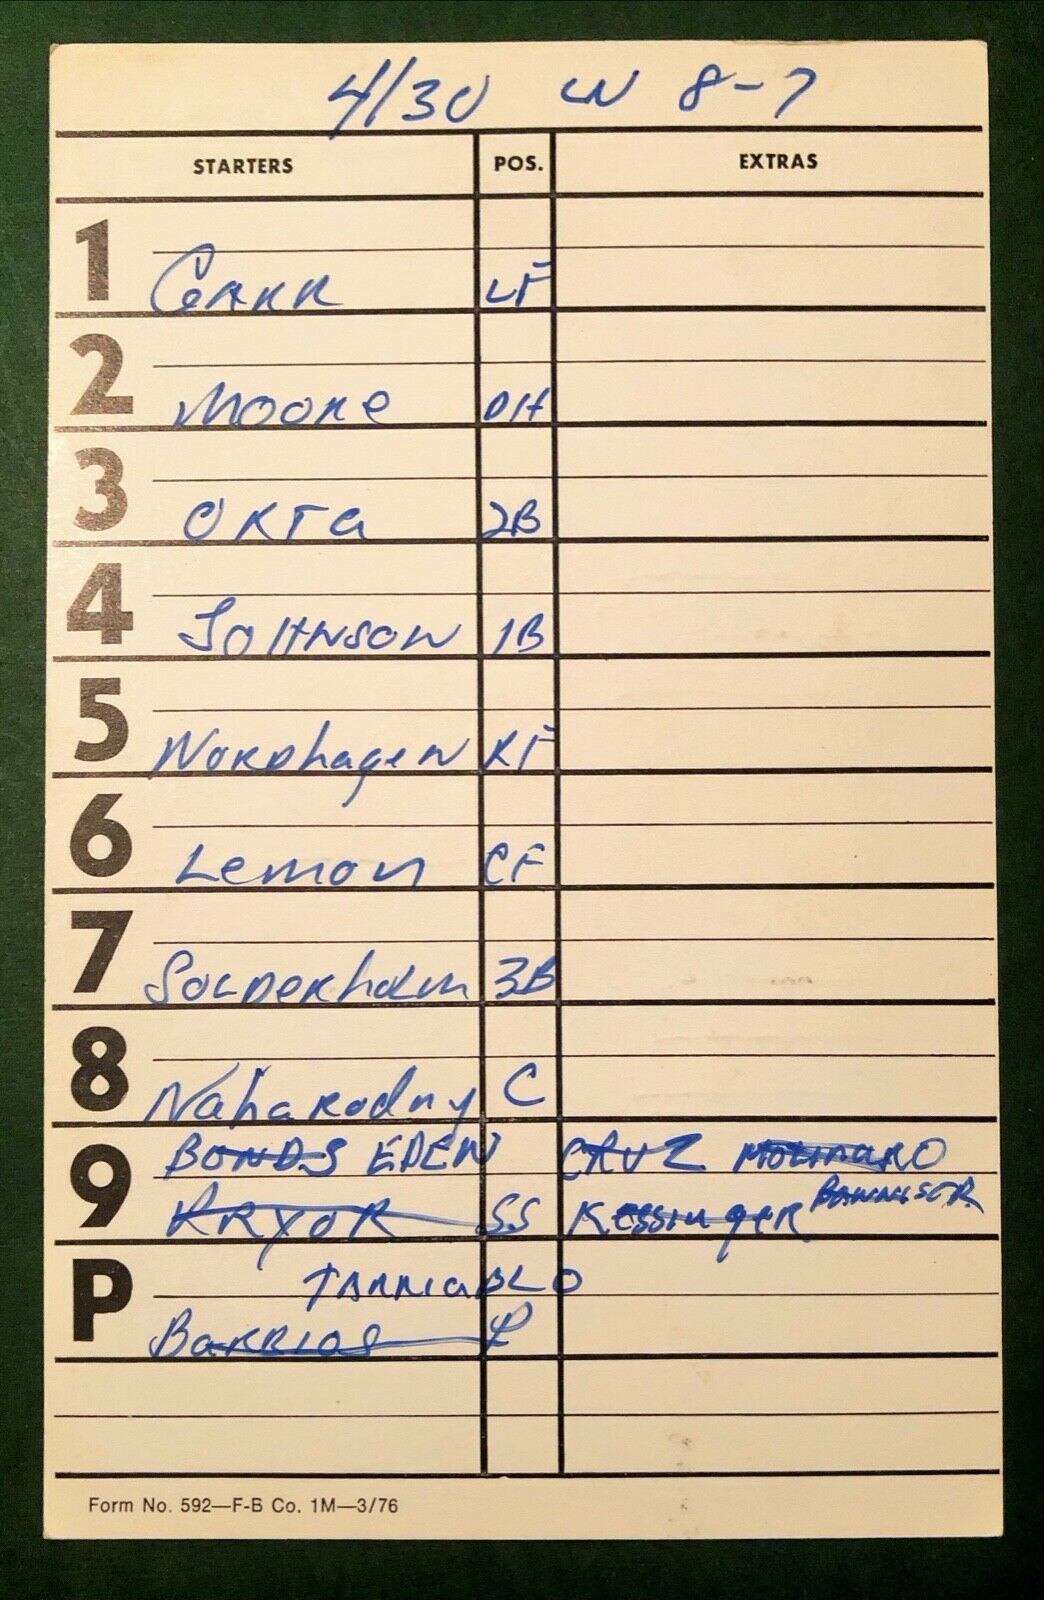 4/30 W 8-7
STARTERS POS. EXTRAS
1 GARR LF
2 MOORE DH
3 ORTA 2B
4 JOHNSON 1B
5 NORDhAgEN RF
6 LEMON CF
7 SOLDERhOLM 3B
8 NAhARodNy C
9 BONDS EDEN CRUZ MOLINARO
PRYOR SS KESSINgER BANNISER
P TARRIABLO
BARRIOS P
Form No. 592—F-B Co. 1M—3/76